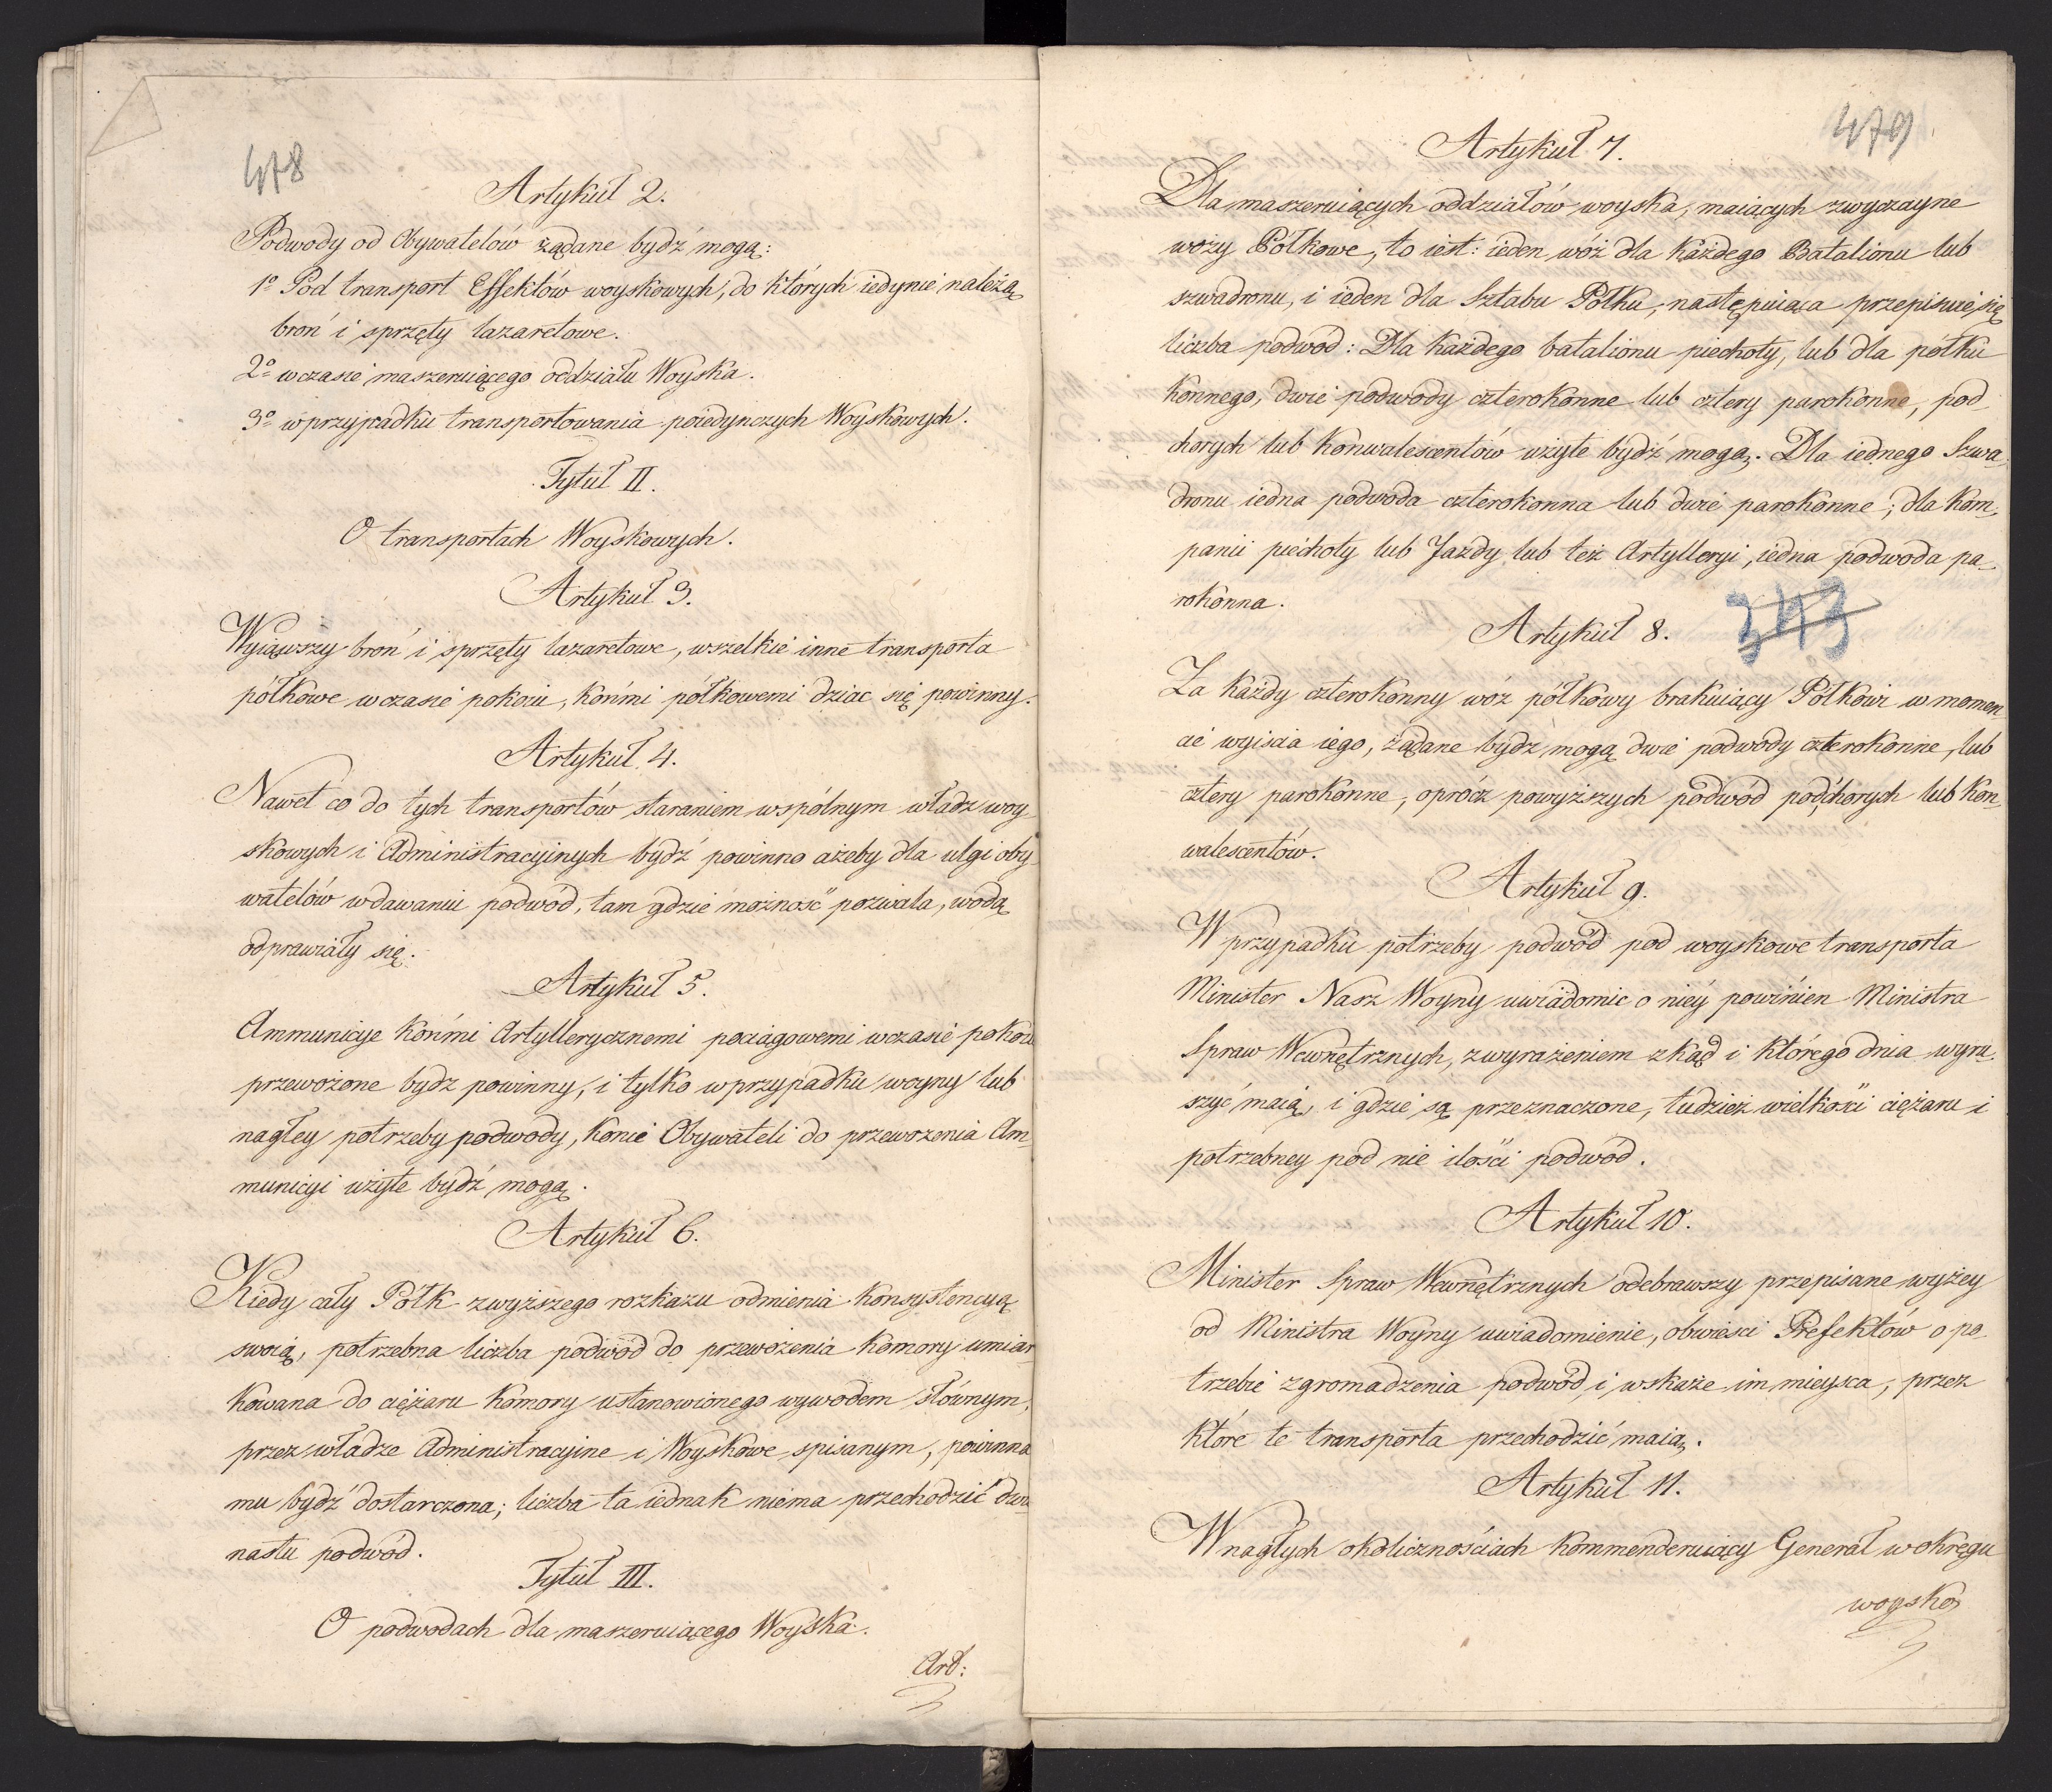 478
Artykuł 2.
Podwody od Obywatelów żądane bydź mogą:
1o Pod transport Effektów woyskowych, do których iedynie należą
broń i sprzęty lazaretowe.
2o w czasie maszeruiącego oddziału Woyska.
3o w przypadku transportowania poiedynczych Woyskowych.
Tytuł II.
O transportach Woyskowych.
Artykuł 3.
Wyiąwszy broń i sprzęty lazaretowe, wszelkie inne transporta
półkowe w czasie pokoiu, końmi półkowemi dziac się powinny.
Artykuł 4.
Nawet co do tych transportów staraniem wspólnym władz woy-
skowych i Administracyinych bydź powinno ażeby dla ulgi oby
watelów w dawaniu podwód, tam gdzie możność pozwala, wodą
odprawiały się.
Artykuł 5.
Ammunicye końmi Artyllerycznemi pociągowemi w czasie pokoiu
przewożone bydz powinny, i tylko w przypadku woyny lub
nagłey potrzeby podwody, konie Obywateli do przewozenia Am-
municyi użyte bydź mogą.
Artykuł 6.
Kiedy cały Półk z wyższego rozkazu odmienia Konsystencyą
swoią, potrzebna liczba podwód do przewożenia Komory umiar
kowana do ciężaru Komory ustanowionego wywodem słównym,
przez władze Administracyine i Woyskowe spisanym, powinna
mu bydź dostarczona; liczba ta iednak niema przechodzić dwu-
nastu podwód.
Tytuł III.
O podwodach dla maszeruiącego Woyska.
Art:
479
Artykuł 7.
Dla maszeruiących oddziałów woyska, maiących zwyczayne
wozy Półkowe, to iest: ieden wóz dla każdego Batalionu lub
szwadronu, i ieden dla Sztabu Półku, następuiąca przepisuie się
liczba podwod: Dla każdego batalionu piechoty, lub dla półku
Konnego, dwie podwody czterokonne lub cztery parokonne, pod
chorych lub Konwalescentów użyte bydź mogą. Dla iednego Szwa-
dronu iedna podwoda czterokonna lub dwie parokonne; dla Kom-
panii piechoty lub Jazdy lub też Artylleryi, iedna podwoda pa-
rokonna.
343
Artykuł 8.
Za każdy czterokonny wóz półkowy brakuiący Półkowi w momen-
cie wyiscia iego, żądane bydz mogą dwie podwody czterokonne, lub
cztery parokonne, oprócz powyższych podwód pod chorych lub Kon-
walescentów.
Artykuł 9.
W przypadku potrzeby podwód pod woyskowe transporta
Minister Nasz Woyny uwiadomic o niey powinien Ministra
Spraw Wewnętrznych, z wyrażeniem zkąd i którego dnia wyru-
szyć maią, i gdzie są przeznaczone, tudzież wielkości ciężaru i
potrzebney pod nie ilości podwód.
Artykuł 10.
Minister Spraw Wewnętrznych odebrawszy przepisane wyżey
od Ministra Woyny uwiadomienie, obwieści Prefektów o po-
trzebie zgromadzenia podwód, i wskaże im mieysca, przez
które te transporta przechodzić maią.
Artykuł 11.
W nagłych okolicznościach Kommenderuiący Generał w okręgu
woysko